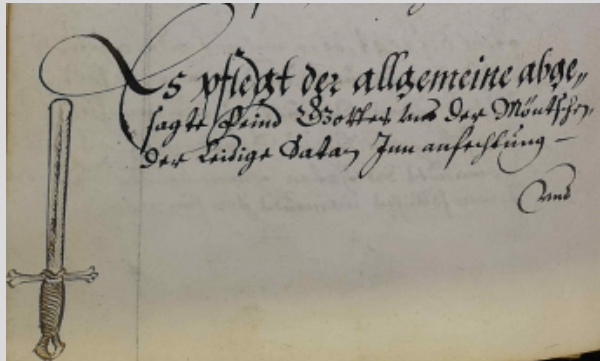 Es pflegt der allgemeine abge„
sagte Feind Gottes und der Möntschen,
der Leidige Satan Inn anfechtung —
und